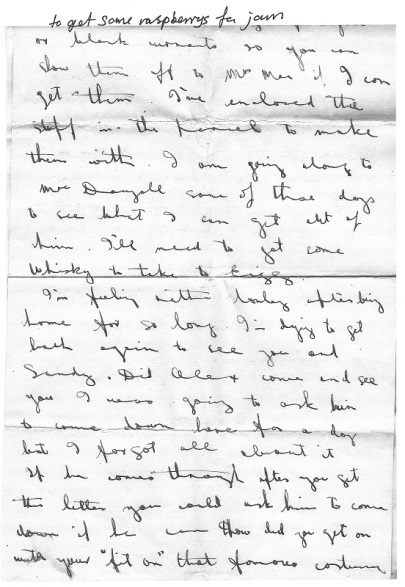 to get some raspberrys for jam
or black currants so you can
show them off to Mrs Mac if I can
get them. I've enclosed the
stuff in the parcel to make
them with. I am going along to
some of these days
to see what I can get out of
him. I'll need to get some
Whisky to take to
I'm feeling rotten today after being
home for so long. I'm dying to get
back again to see you and
Sandy. Did Alex come and see
you I was going to ask him
to come down here for a day
but I forgot all about it
If he comes through after you get
this letter you could ask him to come
down if he can How did you get on
with your "fit on" that famous costume